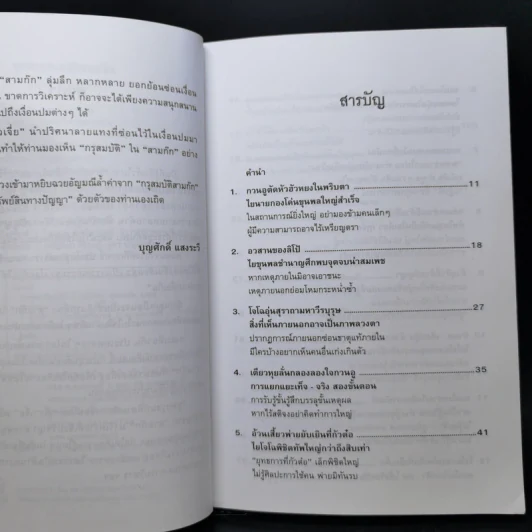 "สามก๊ก" ลุ่มลึก หลากหลาย ยอกย้อนซ่อนเงื่อน
ขาดการวิเคราะห์ ก็อาจจะได้เพียงความสนุกสนาน
ปถึงเงื่อนปมต่างๆ ได้
นำปริศนาลายแทงที่ซ่อนไว้ในเงื่อนปมมา
ทำให้ท่านมองเห็น "กรุสมบัติ" ใน "สามก๊ก" อย่าง
วงเข้ามาหยิบฉวยอัญมณีล้ำค่าจาก "กรุสมบัติสามก๊ก"
พย์สินทางปัญญา" ด้วยตัวของท่านเองเถิด
บุญศักดิ์ แสงระวี
สารบัญ
คำนำ
1. กวนอูตัดหัวฮัวหยงในพริบตา 11
ไยนายกองโค่นขุนพลใหญ่สำเร็จ
ในสถานการณ์ยิ่งใหญ่ อย่ามองข้ามคนเล็กๆ
ผู้มีความสามารถอาจไร้เหรียญตรา
2. อวสานของลิโป้ 18
ไยขุนพลชำนาญศึกพบจุดจบน่าสมเพช
หากเหตุภายในมิอาจเอาชนะ
เหตุภายนอกย่อมโหมกระหน่ำซ้ำ
3. โจโฉอุ่นสุราถามหาวีรบุรุษ 27
สิ่งที่เห็นภายนอกอาจเป็นภาพลวงตา
ปรากฏการณ์ภายนอกซ่อนธาตุแท้ภายใน
มีใครบ้างอยากเห็นคนอื่นเก่งเกินตัว
4. เตียวหุยลั่นกลองลองใจกวนอู 35
การแยกแยะเท็จ - จริง สองขั้นตอน
การรับรู้ขั้นรู้สึกบรรลุขั้นเหตุผล
หากไร้สติจงอย่าคิดทำการใหญ่
5. อ้วนเสี้ยวพ่ายยับเยินที่กัวต๋อ 41
ไยโจโฉพิชิตทัพใหญ่กว่าถึงสิบเท่า
"ยุทธการที่กัวต๋อ" เล็กพิชิตใหญ่
ไม่รู้ศิลปะการใช้คน พ่ายมิทันรบ